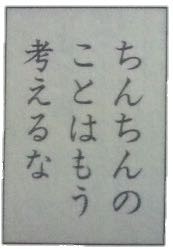 ちんちんの
ことはもう
考えるな